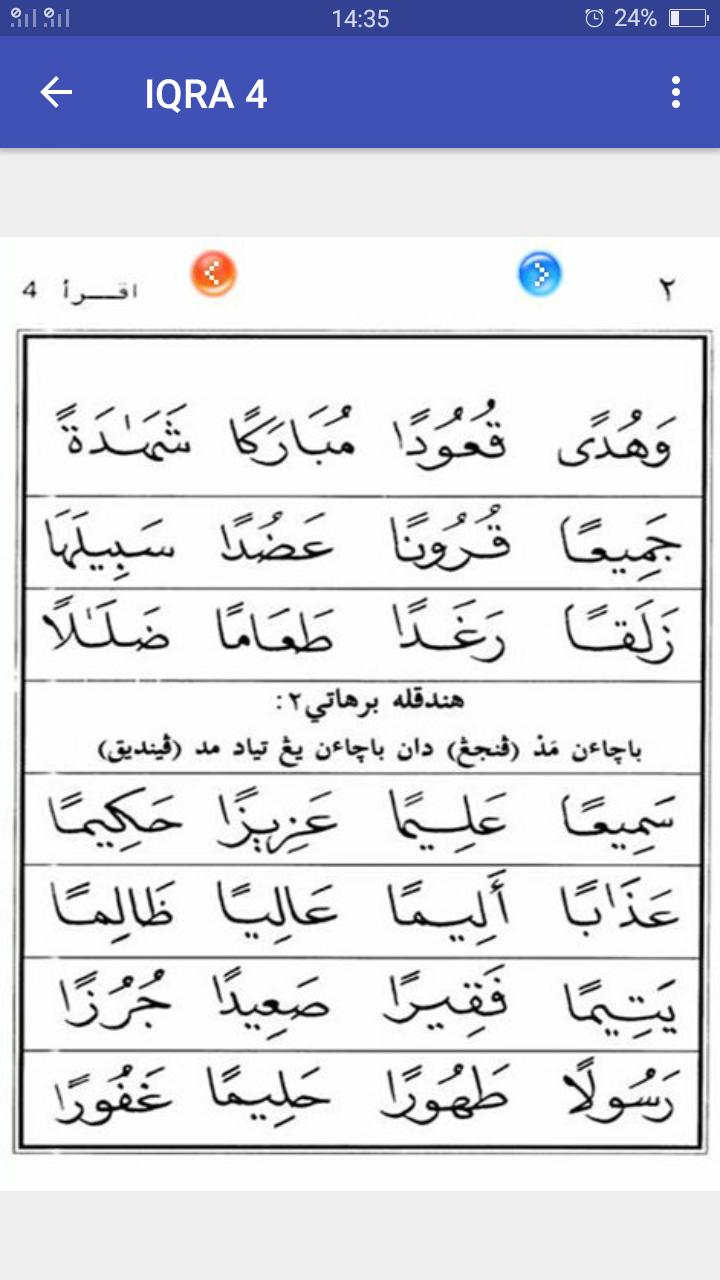 14:35 24%
IQRA 4
اقـــرأ 4 ٢
وَهُدًى قُعُودًا مُبَارَكًا شَهَٰدَةً
جَمِيعًا قُرُونًا عَضُدًا سَبِيلَهَا
زَلَقًا رَغَدًا طَعَامًا ضَلَٰلًا
هندقله برهاتي٢:
باچاءن مَدْ (ڤنجڠ) دان باچاءن يڠ تياد مد (ڤينديق)
سَمِيعًا عَلِيمًا عَزِيزًا حَكِيمًا
عَذَابًا أَلِيمًا عَالِيًا ظَالِمًا
يَتِيمًا فَقِيرًا صَعِيدًا جُرُزًا
رَسُولًا طَهُورًا حَلِيمًا غَفُورًا